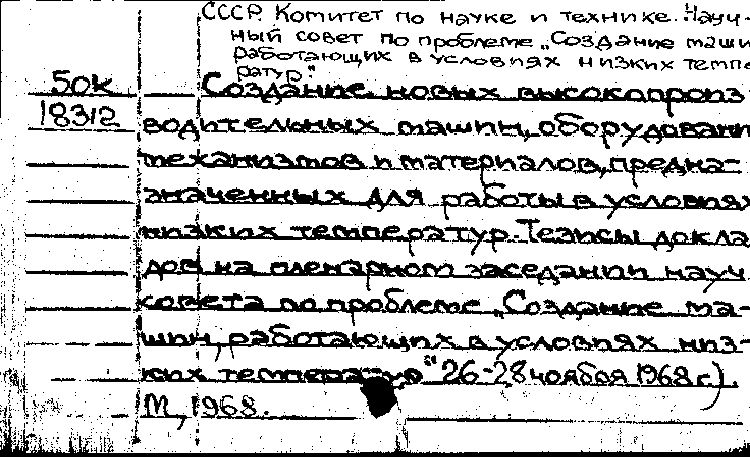 СССР. Комитет по науке и технике. Науч-
ный совет по проблеме „Создание маши
работающих в условиях низких темпе
ратур."
50к Создание новых высокопроиз
18312 водительных машин, оборудовани
механизмов и материалов, предна-
значенных для работы в условиях
низких температур. Тезисы докла
дов на пленарном заседании науч
совета по проблеме „Создание ма-
шин, работающих в условиях низ-
ких температур" 26-28 ноября 1968 г.).
М., 1968.